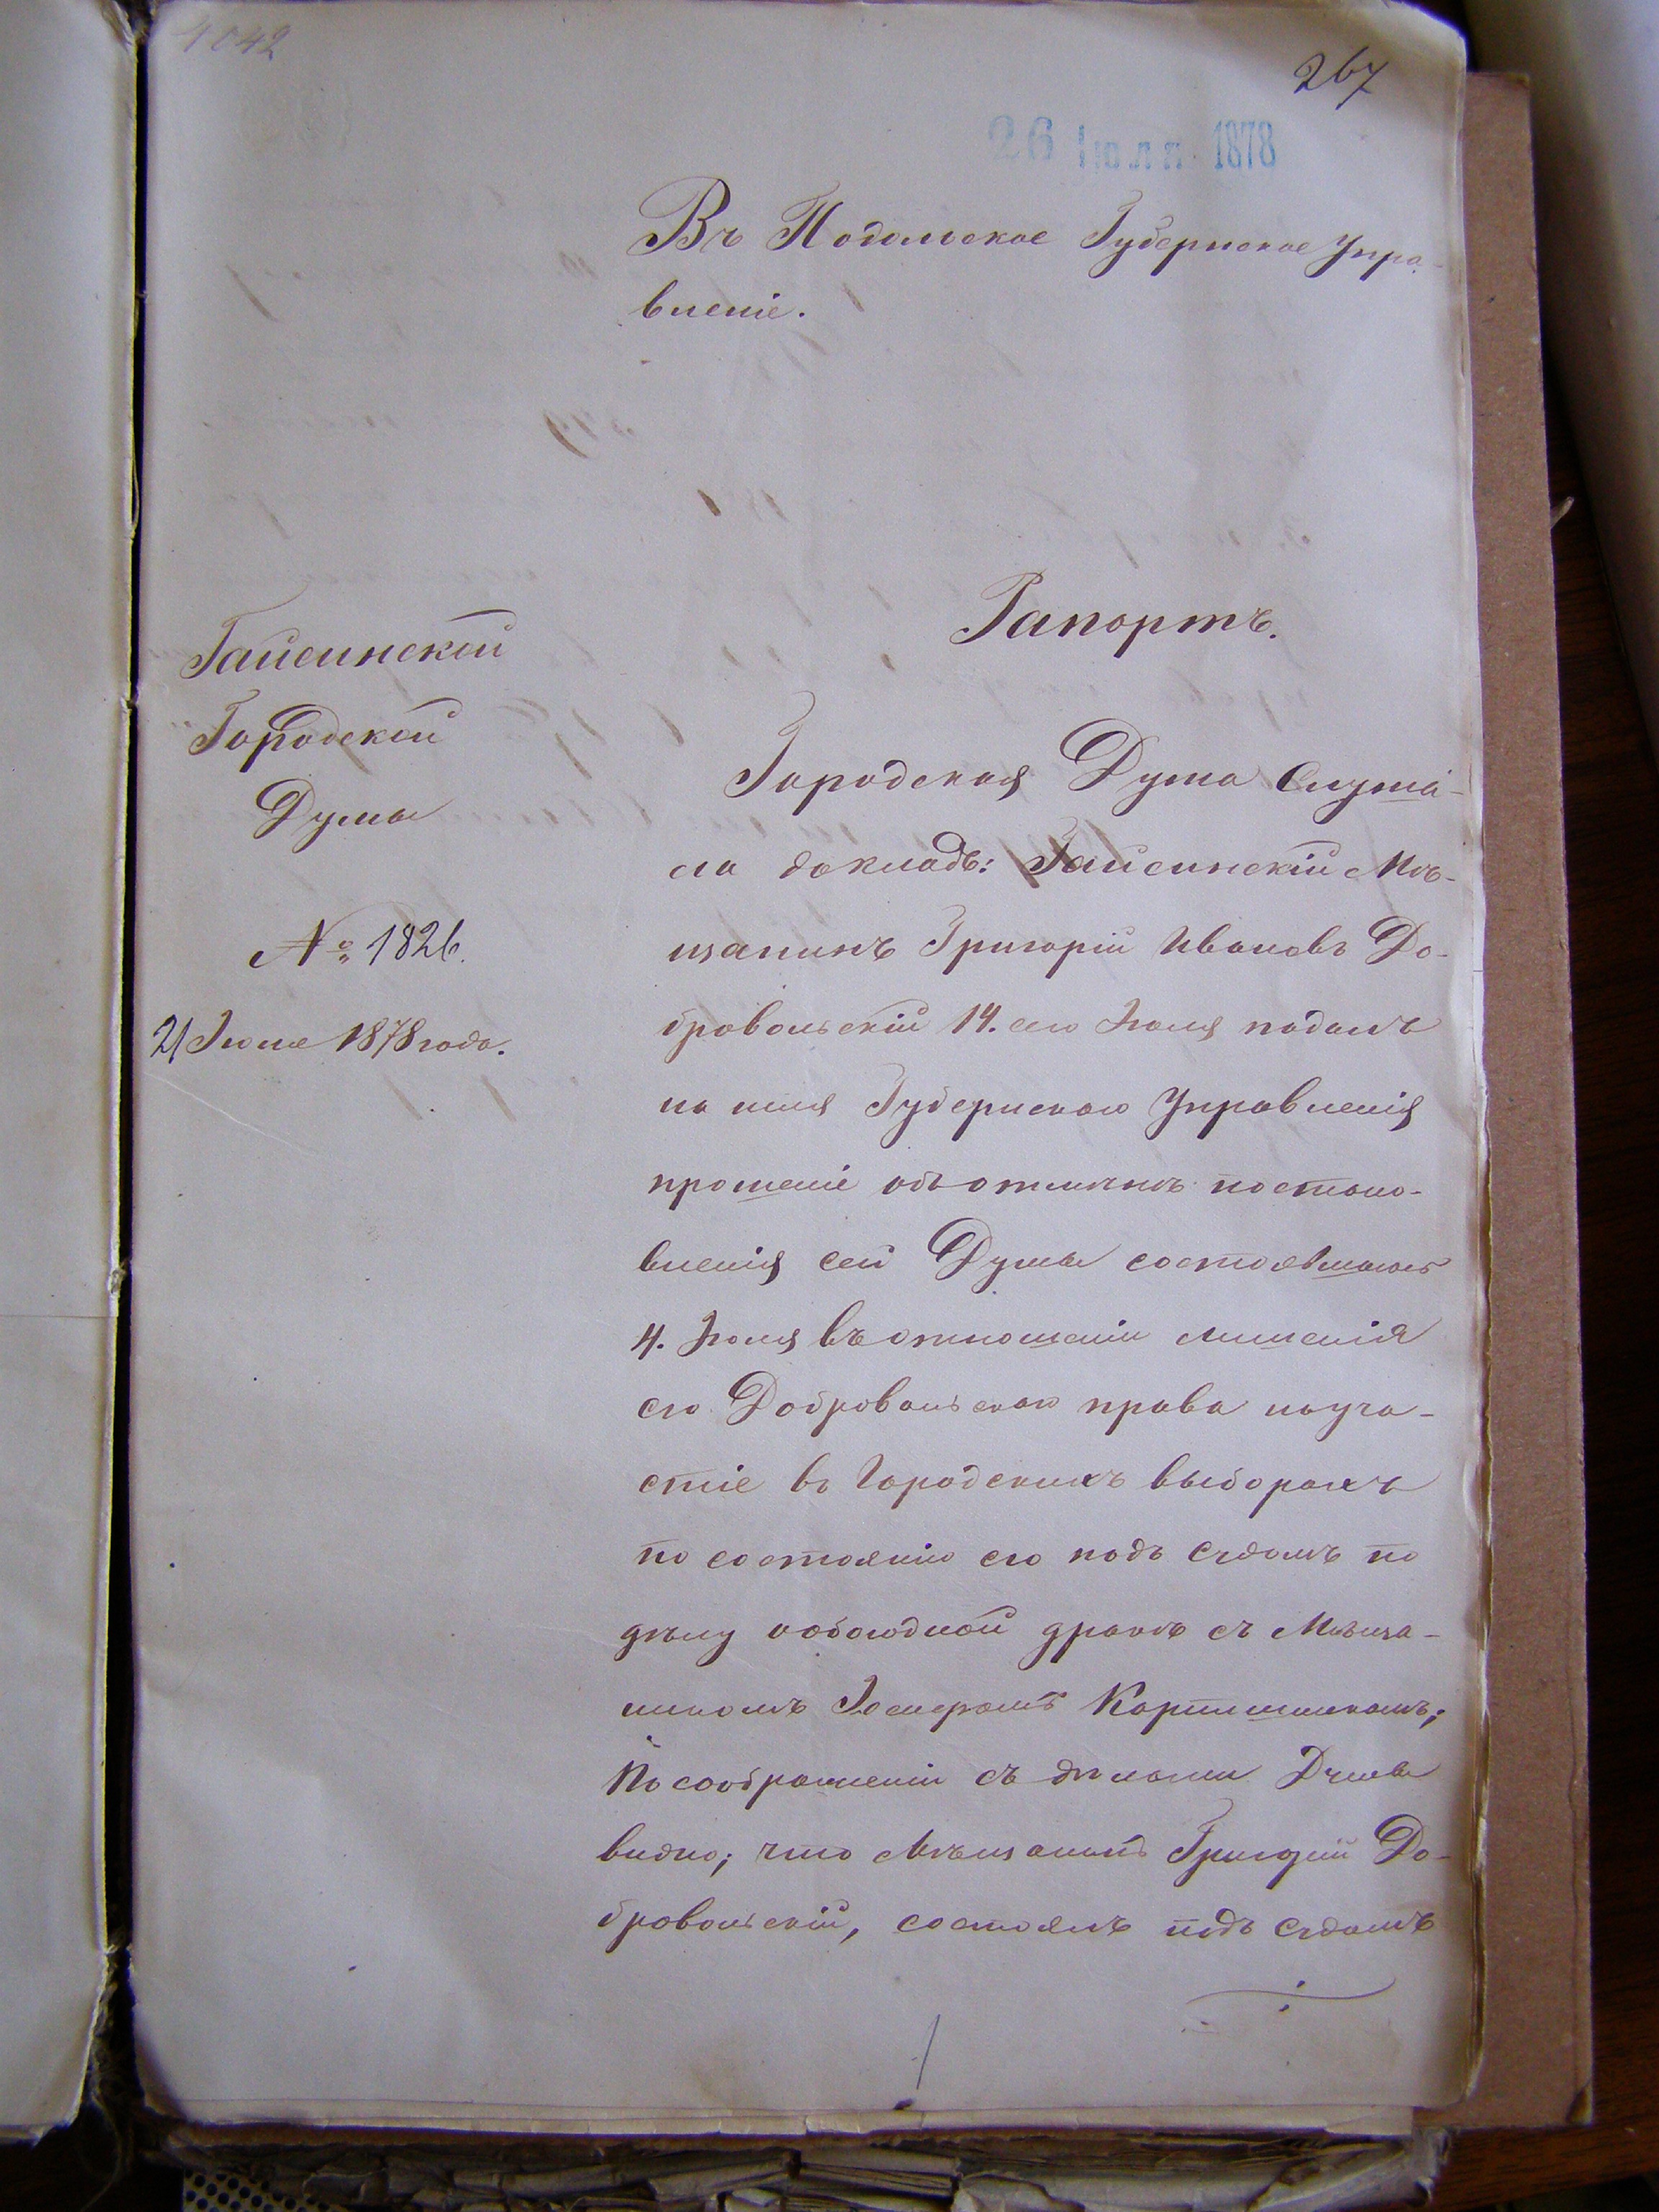 1042
267
26 Іюля 1878
Въ Подольское Губернское Упра-
вленіе.
Рапортъ.
Гайсинской
Городской
Думы
№ 1826.
21 Іюля 1878 года.
Городская Дума слуша-
ла докладъ: Гайсинскій Мѣ-
щанинъ Григорій Ивановъ До-
бровольскій 14. сего Іюля подалъ
на имя Губернскаго Управленія
прошеніе объ отмѣнѣ постано-
вленія сей Думы состоявшагось
4. Іюля въ отношеніи лишенія
его Добровольскаго права на уча-
стіе въ Городскихъ выборахъ
по состоянію его подъ судомъ по
дѣлу обоюдной дракѣ съ Мѣща-
ниномъ
По соображеніи съ дѣлами Думы
видно; что Мѣщанинъ Григорій До-
бровольскій, состоялъ подъ судомъ